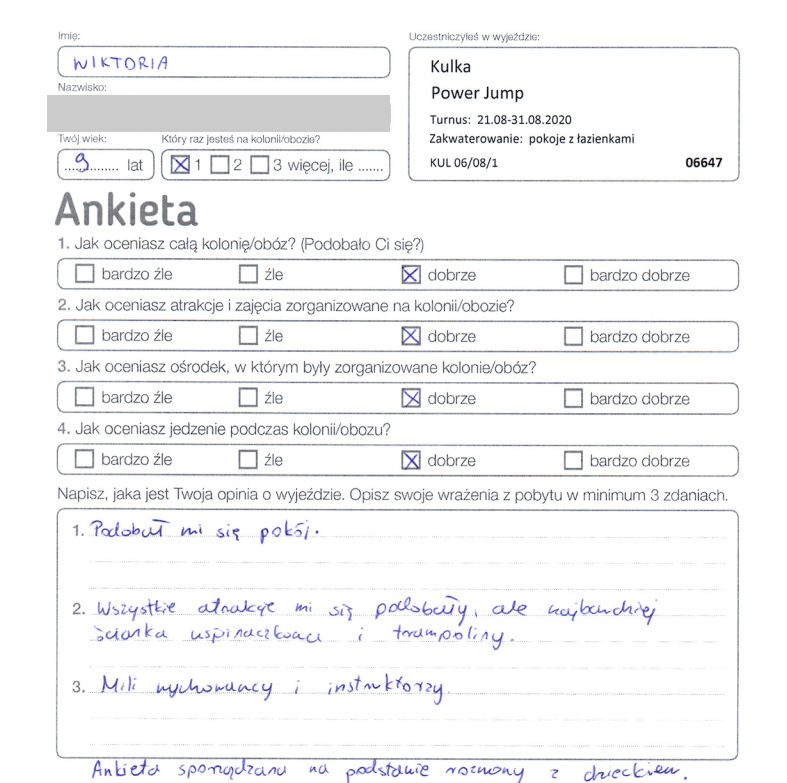 Imię:
WIKTORIA
Nazwisko:
Twój wiek:
9 lat
Który raz jesteś na kolonii/obozie?
1 2 3 więcej, ile .......
Uczestniczyłeś w wyjeździe:
Kulka
Power Jump
Turnus: 21.08-31.08.2020
Zakwaterowanie: pokoje z łazienkami
KUL 06/08/1 06647
Ankieta
1. Jak oceniasz całą kolonię/obóz? (Podobało Ci się?)
bardzo źle źle dobrze bardzo dobrze
2. Jak oceniasz atrakcje i zajęcia zorganizowane na kolonii/obozie?
bardzo źle źle dobrze bardzo dobrze
3. Jak oceniasz ośrodek, w którym były zorganizowane kolonie/obóz?
bardzo źle źle dobrze bardzo dobrze
4. Jak oceniasz jedzenie podczas kolonii/obozu?
bardzo źle źle dobrze bardzo dobrze
Napisz, jaka jest Twoja opinia o wyjeździe. Opisz swoje wrażenia z pobytu w minimum 3 zdaniach.
1. Podobał mi się pokój.
2. Wszystkie atrakcje mi się podobały, ale najbardziej
ścianka wspinaczkowa i trampoliny.
3. Mili wychowawcy i instruktorzy.
Ankieta sporządzana na podstawie rozmowy z dzieckiem.